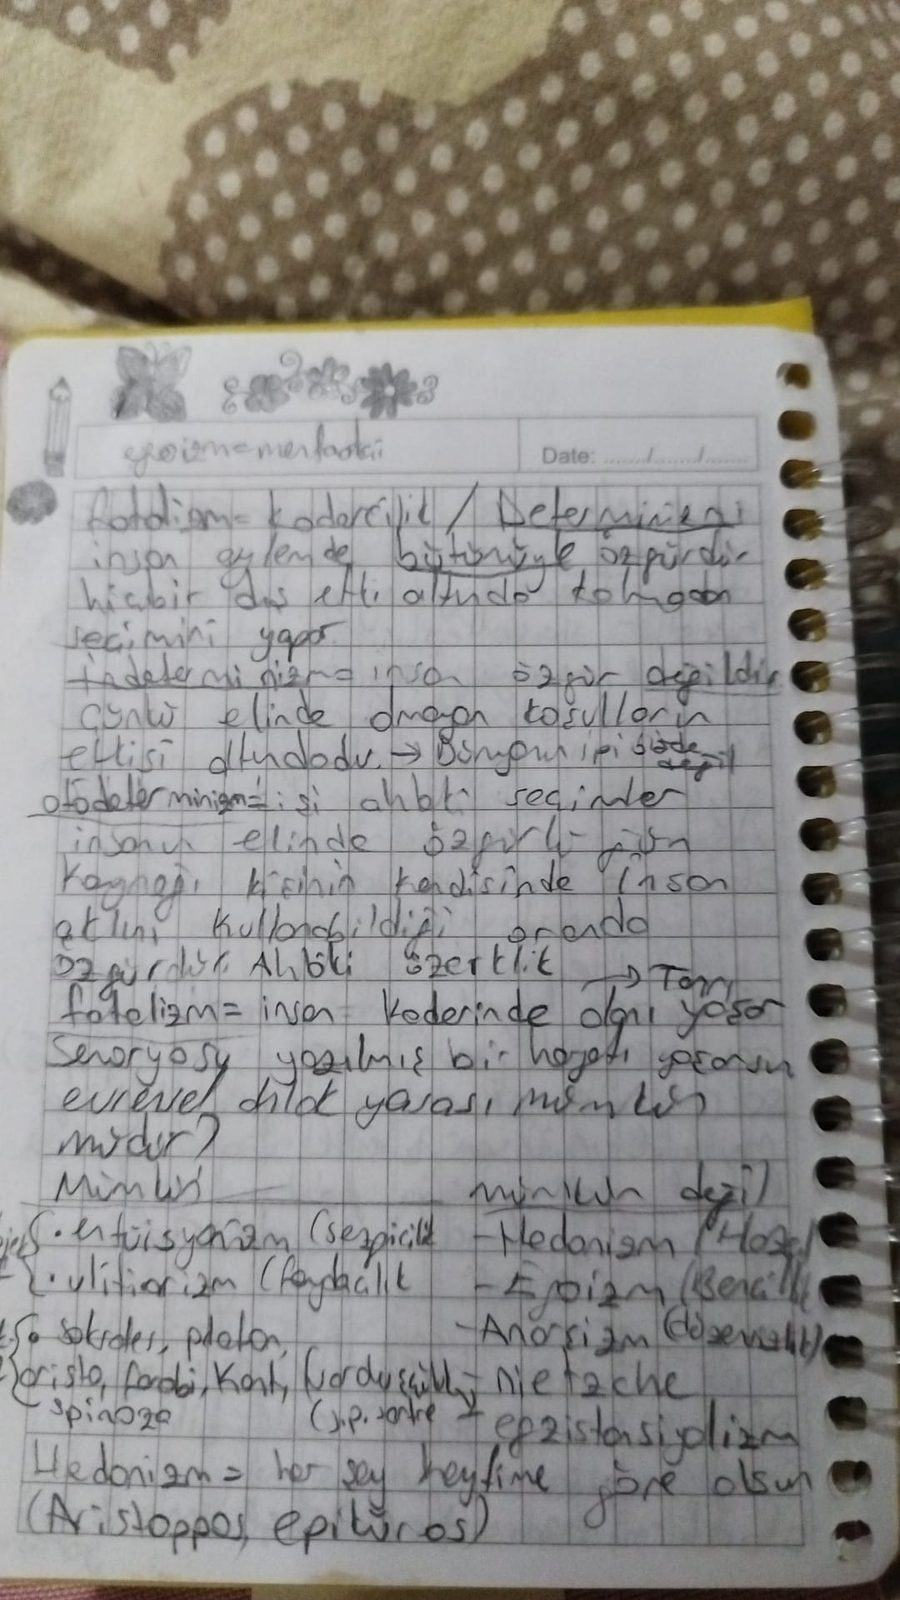 egoizm=menfaatki
Date: ....../....../......
fatalizm= kadercilik / Determinizm
insan eylemde bütünüyle özgürdür
hiçbir dış etki altında kalmadan
seçimini yapar
İndeterminizm= insan özgür değildir
Çünkü elinde olmayan koşulların
etkisi altındadır. → Dünyanın ipi bizde değil
otodeterminizm= ahlaki seçimler
insanın elinde özgürlüğün
Kaynağı kişinin kendisinde insan
aklını kullanabildiği oranda
özgürdür. Ahlaki özerklik
→ Tanrı
fatalizm= insan kaderinde olanı yaşar
Senaryosu yazılmış bir hayatı yaşarsın
evrensel ahlak yasası mümkün
müdür?
Mümkün mümkün değil
• entüisyonizm (sezgicilik - Hedonizm (Hazcı
• ulitiarizm (faydacılık - Egoizm (Bencillik
sokrates, platon, - Anarşizm (düzensizlik)
aristo, farabi, Kant, - nietzche
spinoza (j.p. sartre - egzistansiyalizm
Hedonizm = her şey keyfime göre olsun
(Aristoppos, epiküros)